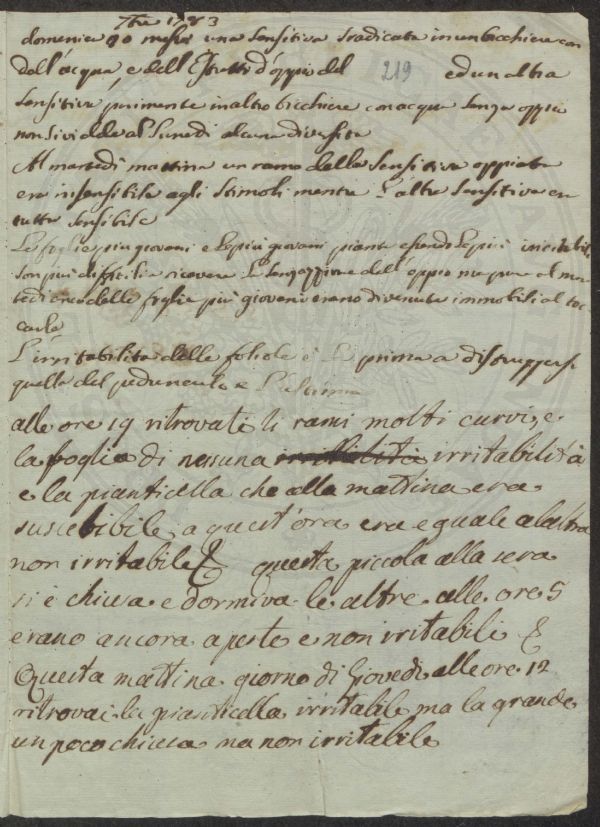 7bre 1783
domenica 90 messa una Sensitiva sradicata in un bicchiere con
dell'acqua, e dell'Estratto d'oppio del 219 ed un altra
Sensitiva parimente in altro bicchiere con acqua senza oppio
non si vidde al Lunedì alcuna diversità
Al martedì mattina un ramo della Sensitiva oppiata
era insensibile agli stimoli mentre l'altra Sensitiva era
tutta sensibile
Le foglie più giovani e le più giovani piante essendo le più irritabili
son più difficili a ricevere la sensazione dell'oppio ma pure al mar
tedì anco delle foglie più giovani erano divenute immobili al toc
carle
L'irritabilità delle foliole è la prima a distruggersi
quella del peduncolo è l'ultima
alle ore 19 ritrovati li rami molti curvi, e
la foglia di nessuna irritabilità
e la pianticella che alla mattina era
suscebibile, a quest'ora era eguale alaltra
non irritabile & questa piccola alla sera
si è chiusa e dormiva le altre alle ore 5
erano ancora aperte e non irritabili &
Questa mattina giorno di Giovedì alle ore 12
ritrovai la pianticella irritabile ma la grande
un poco chiusa ma non irritabile